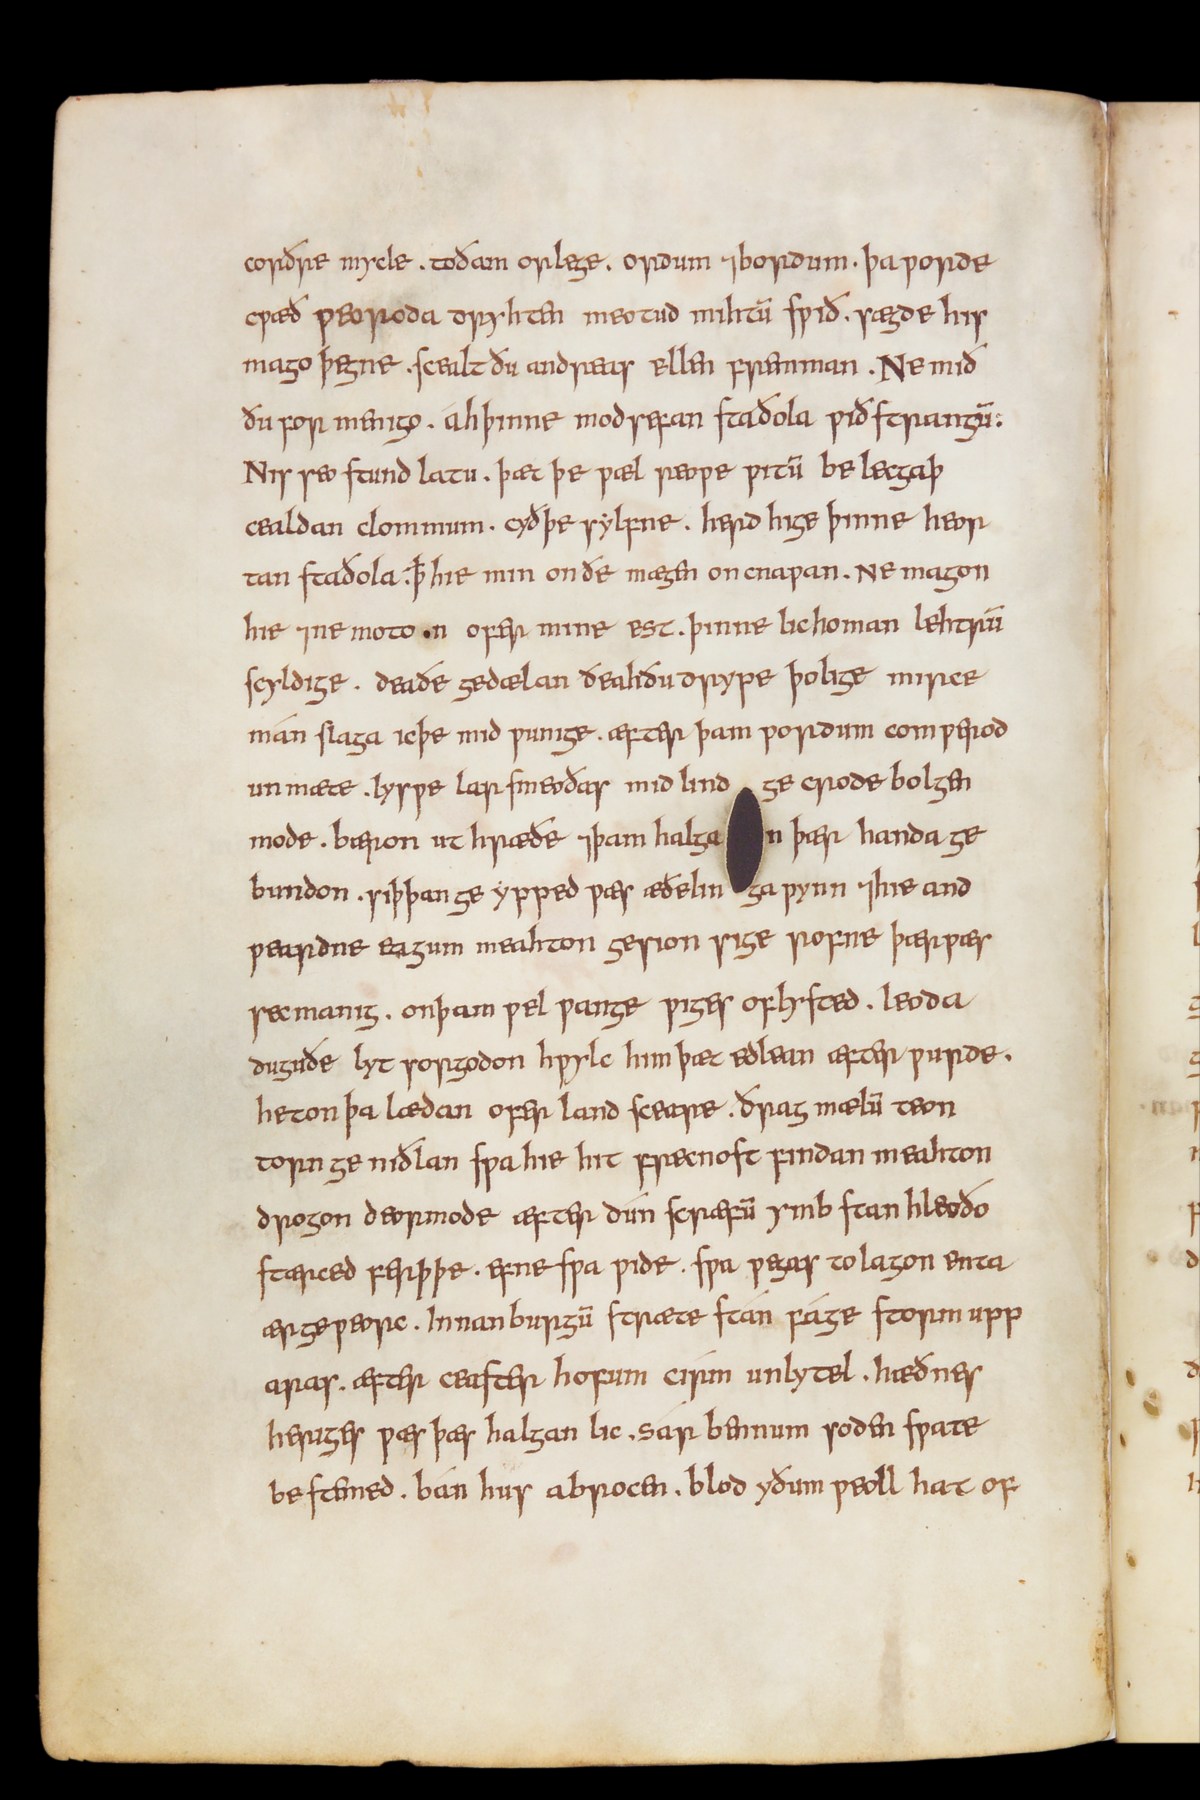 corðre mycle . toðam orlege . ordum ⁊bordum . þa ƿorde
cƿæð ƿeoroda dryhten meotud mihtū sƿið . sægde his
mago þegne . scealt ðu andreas ellen fremman . Ne mið
ðu for menigo . áh þinne modsefan staðola ƿið strangū :
Nis seo stund latu . þæt þe ƿæl reoƿe ƿitū be lecgaþ
cealdan clommum . cyð þe sylfne . herd hige þinne heor
tan staðola : ꝥ hie min on ðe mægen on cnaƿan . Ne magon
hie ⁊ne moto .n ofer mine est . þinne lichoman lehtrū
scyldige . deaðe gedælan ðeahðu drype þolige mirce
mán slaga icþe mid ƿunige . æfter þam ƿordum com ƿerod
un mæte . lysƿe lar smeoðas mid lind ge crode bolgen
mode . bæron ut hræðe ⁊þam halga n þær handa ge
bundon . siþþan ge ẏpped ƿæs æðelin ga ƿynn ⁊hie and
ƿeardne eagum meahton gesion sige rofne þær ƿæs
sec manig . onþam ƿel ƿange ƿiges oflysted . leoda
duguðe lyt sorgodon hƿylc him þæt edlean æfter ƿurde .
heton þa lædan ofer land sceare . ðrag mælū teon
torn ge niðlan sƿa hie hit frecnost findan meahton
drogon deormode æfter dún scræfū ymb stan hleoðo
stærced ferþþe . efne sƿa ƿide . sƿa ƿegas to lagon enta
ærgeƿeorc . Innan burgū stræte stán fáge storm upp
aras . æfter ceaster hofum cirm unlytel . hæðnes
heriges ƿæs þæs halgan lic . sár bennum soden sƿate
be stemed . bán hus abrocen . blod yðum ƿeoll hat of